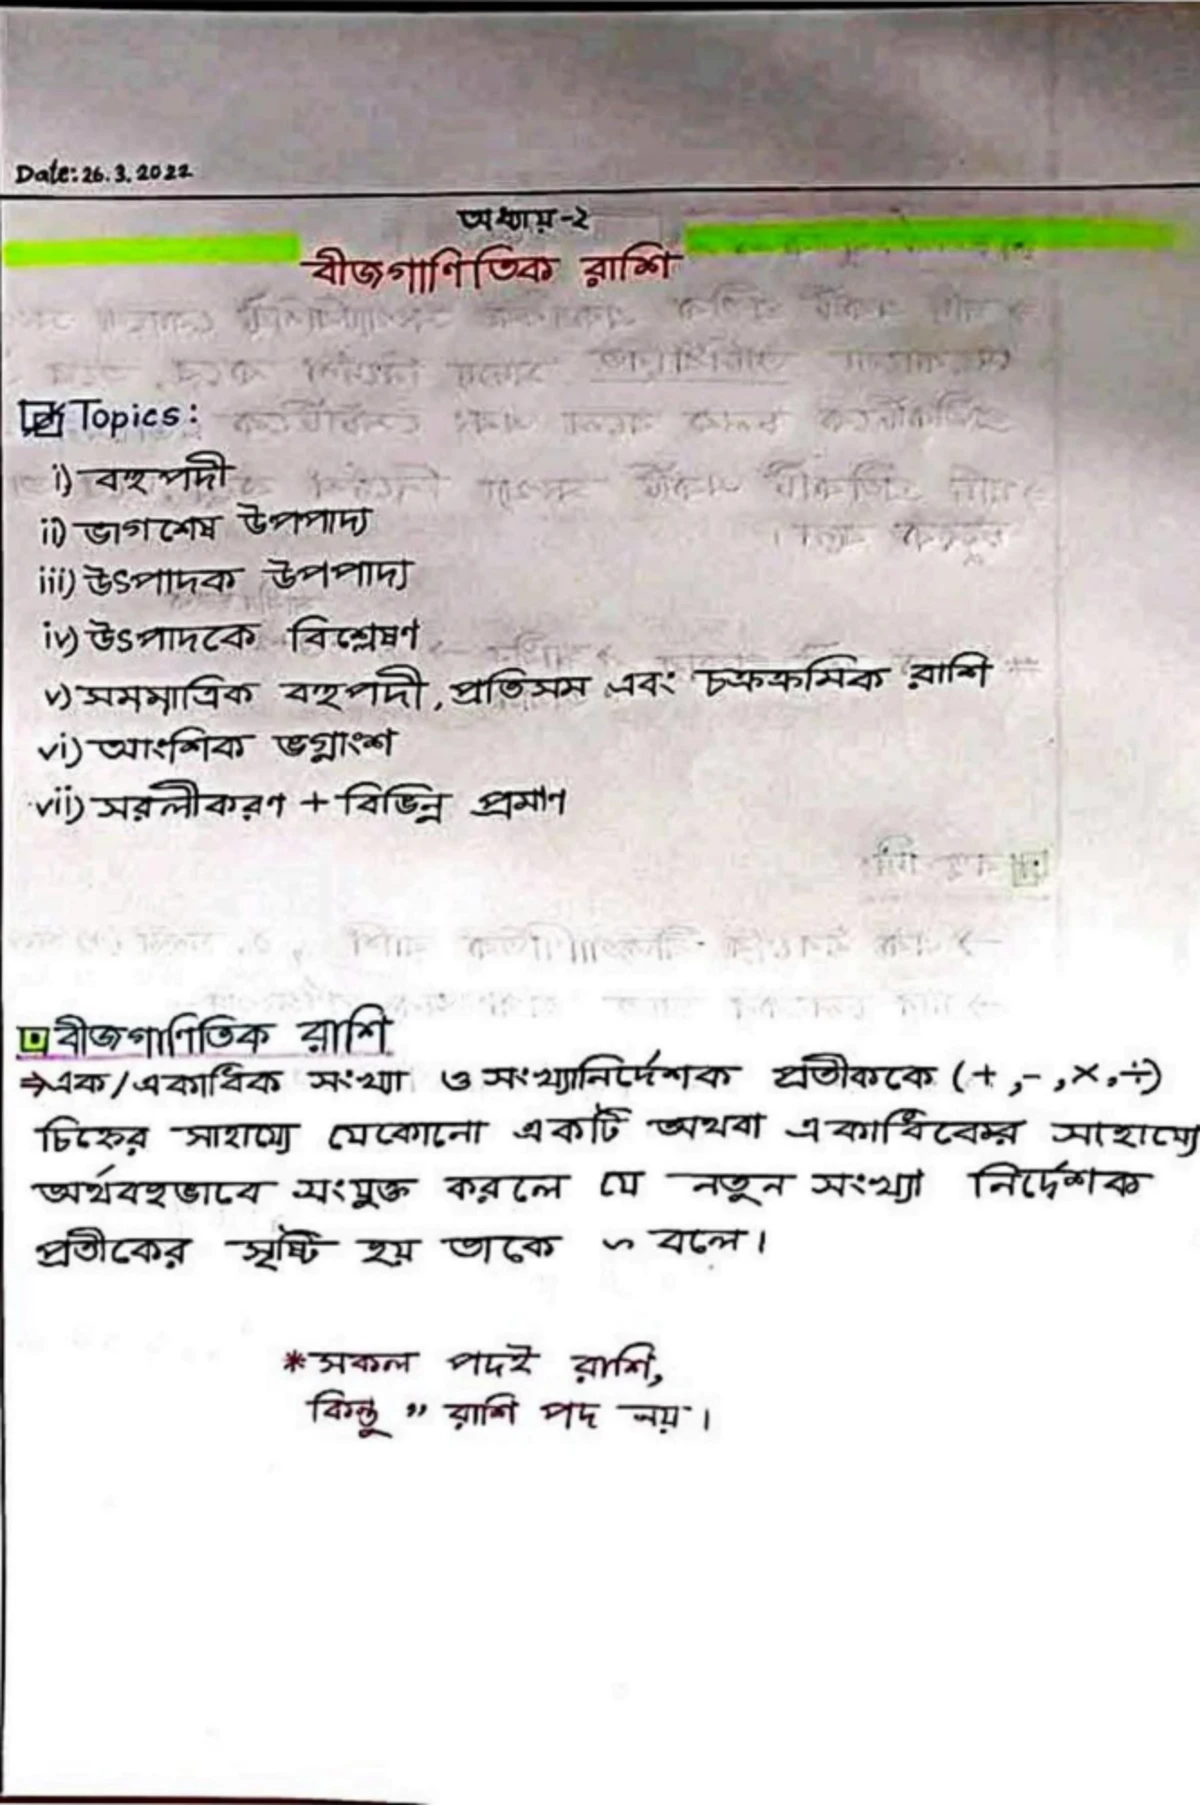 Date: 26.3.2022
অধ্যায়-২
বীজগাণিতিক রাশি
Topics:
i) বহুপদী
ii) ভাগশেষ উপপাদ্য
iii) উৎপাদক উপপাদ্য
iv) উৎপাদকে বিশ্লেষণ
v) সমমাত্রিক বহুপদী, প্রতিসম এবং চক্রক্রমিক রাশি
vi) আংশিক ভগ্নাংশ
vii) সরলীকরণ + বিভিন্ন প্রমাণ
বীজগাণিতিক রাশি
⇒ এক/একাধিক সংখ্যা ও সংখ্যানির্দেশক প্রতীককে (+,-,×,÷)
চিহ্নের সাহায্যে যেকোনো একটি অথবা একাধিকের সাহায্যে
অর্থবহভাবে সংযুক্ত করলে যে নতুন সংখ্যা নির্দেশক
প্রতীকের সৃষ্টি হয় তাকে " বলে।
* সকল পদই রাশি,
কিন্তু " রাশি পদ নয়।